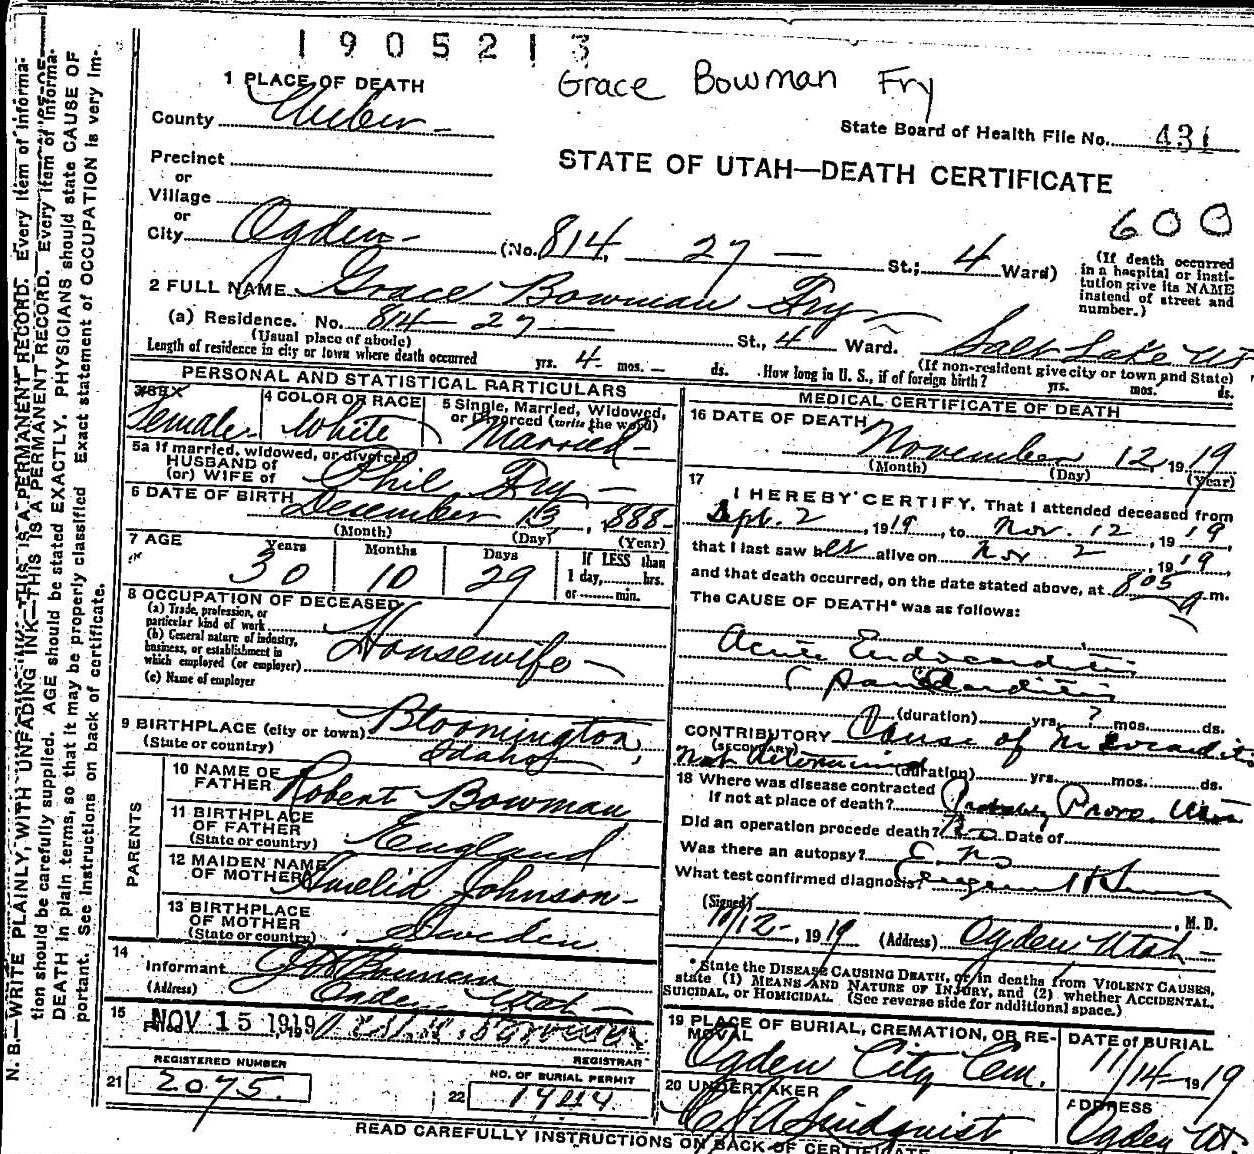 1905213
Grace Bowman Fry
1 PLACE OF DEATH
County Weber
State Board of Health File No. 431
Precinct
STATE OF UTAH—DEATH CERTIFICATE
or
Village
or
600
City Ogden (No. 814, 27 St.; 4 Ward)
(If death occurred in a hospital or institution give its NAME instead of street and number.)
2 FULL NAME Grace Bowman Fry
(a) Residence. No. 814 27 St., 4 Ward. Salt Lake
(Usual place of abode)
(If non-resident give city or town and State)
Length of residence in city or town where death occurred yrs. 4 mos. — ds. How long in U. S., if of foreign birth? yrs. mos. ds.
PERSONAL AND STATISTICAL PARTICULARS
3 SEX
Female
4 COLOR OR RACE
White
5 Single, Married, Widowed, or Divorced (write the word)
Married
5a If married, widowed, or divorced
HUSBAND of
(or) WIFE of Phil Fry
6 DATE OF BIRTH December 13, 1888
(Month) (Day) (Year)
7 AGE
Years Months Days
30 10 29
If LESS than
1 day, hrs.
or min.
8 OCCUPATION OF DECEASED
(a) Trade, profession, or
particular kind of work
(b) General nature of industry,
business, or establishment in
which employed (or employer)
Housewife
(c) Name of employer
9 BIRTHPLACE (city or town) Bloomington,
(State or country) Idaho
PARENTS
10 NAME OF
FATHER Robert Bowman
11 BIRTHPLACE
OF FATHER
(State or country) England
12 MAIDEN NAME
OF MOTHER Amelia Johnson
13 BIRTHPLACE
OF MOTHER
(State or country) Sweden
14
Informant Bowman
(Address) Ogden Utah
15 Filed NOV 15 1919, 19
REGISTRAR
REGISTERED NUMBER
21 2075.
NO. OF BURIAL PERMIT
22
MEDICAL CERTIFICATE OF DEATH
16 DATE OF DEATH
November 12, 1919
(Month) (Day) (Year)
17
I HEREBY CERTIFY, That I attended deceased from
Sept. 2, 1919, to Nov. 12, 1919
that I last saw her alive on Nov. 2, 1919,
and that death occurred, on the date stated above, at 805 a m.
The CAUSE OF DEATH* was as follows:
Acute Endocarditis
(duration) yrs. ? mos. ds.
CONTRIBUTORY Cause of
(SECONDARY)
Not determined (duration) yrs. mos. ds.
18 Where was disease contracted
If not at place of death? Probably Provo, Utah
Did an operation precede death? No Date of
Was there an autopsy? No
What test confirmed diagnosis?
(Signed) , M. D.
11/12, 1919 (Address) Ogden, Utah
* State the DISEASE CAUSING DEATH, or in deaths from VIOLENT CAUSES,
state (1) MEANS AND NATURE OF INJURY, and (2) whether ACCIDENTAL,
SUICIDAL, or HOMICIDAL. (See reverse side for additional space.)
19 PLACE OF BURIAL, CREMATION, OR RE-
MOVAL
Ogden City Cem.
DATE of BURIAL
11/14 1919
20 UNDERTAKER
Lindquist
ADDRESS
Ogden Ut.
READ CAREFULLY INSTRUCTIONS ON BACK OF CERTIFICATE
N. B.—WRITE PLAINLY, WITH UNFADING INK—THIS IS A PERMANENT RECORD. Every item of informa-
tion should be carefully supplied. AGE should be stated EXACTLY. PHYSICIANS should state CAUSE OF
DEATH in plain terms, so that it may be properly classified. Exact statement of OCCUPATION is very im-
portant. See instructions on back of certificate.